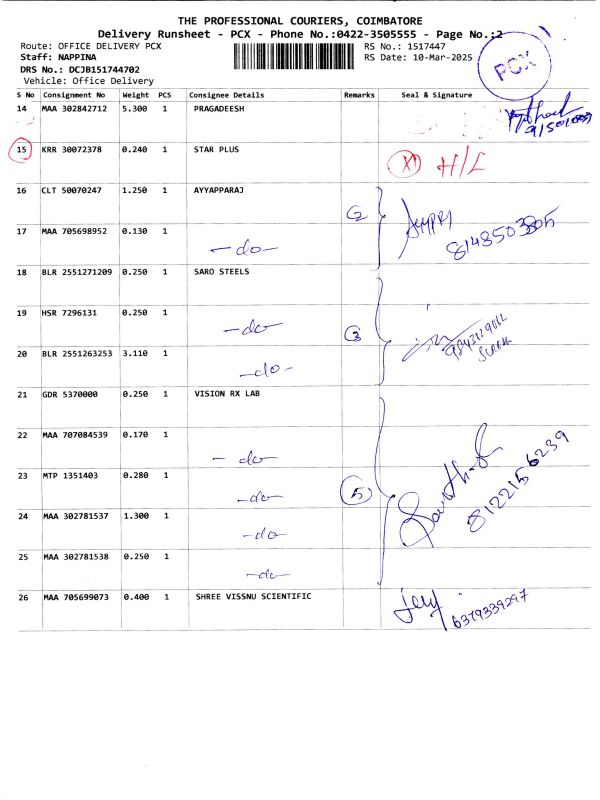 THE PROFESSIONAL COURIERS, COIMBATORE
Delivery Runsheet - PCX - Phone No.:0422-3505555 - Page No.:2
Route: OFFICE DELIVERY PCX RS No.: 1517447
Staff: NAPPINA RS Date: 10-Mar-2025
DRS No.: DCJB151744702
Vehicle: Office Delivery
PCX
S No Consignment No Weight PCS Consignee Details Remarks Seal & Signature
14 MAA 302842712 5.300 1 PRAGADEESH
15 KRR 30072378 0.240 1 STAR PLUS H/L
16 CLT 50070247 1.250 1 AYYAPPARAJ
2
17 MAA 705698952 0.130 1 -do-
18 BLR 2551271209 0.250 1 SARO STEELS
19 HSR 7296131 0.250 1 -do- 3
20 BLR 2551263253 3.110 1 -do-
21 GDR 5370000 0.250 1 VISION RX LAB
22 MAA 707084539 0.170 1 -do-
8122156239
23 MTP 1351403 0.280 1 -do- 5
24 MAA 302781537 1.300 1 -do-
25 MAA 302781538 0.250 1 -do-
26 MAA 705699073 0.400 1 SHREE VISSNU SCIENTIFIC Jery
6379339297